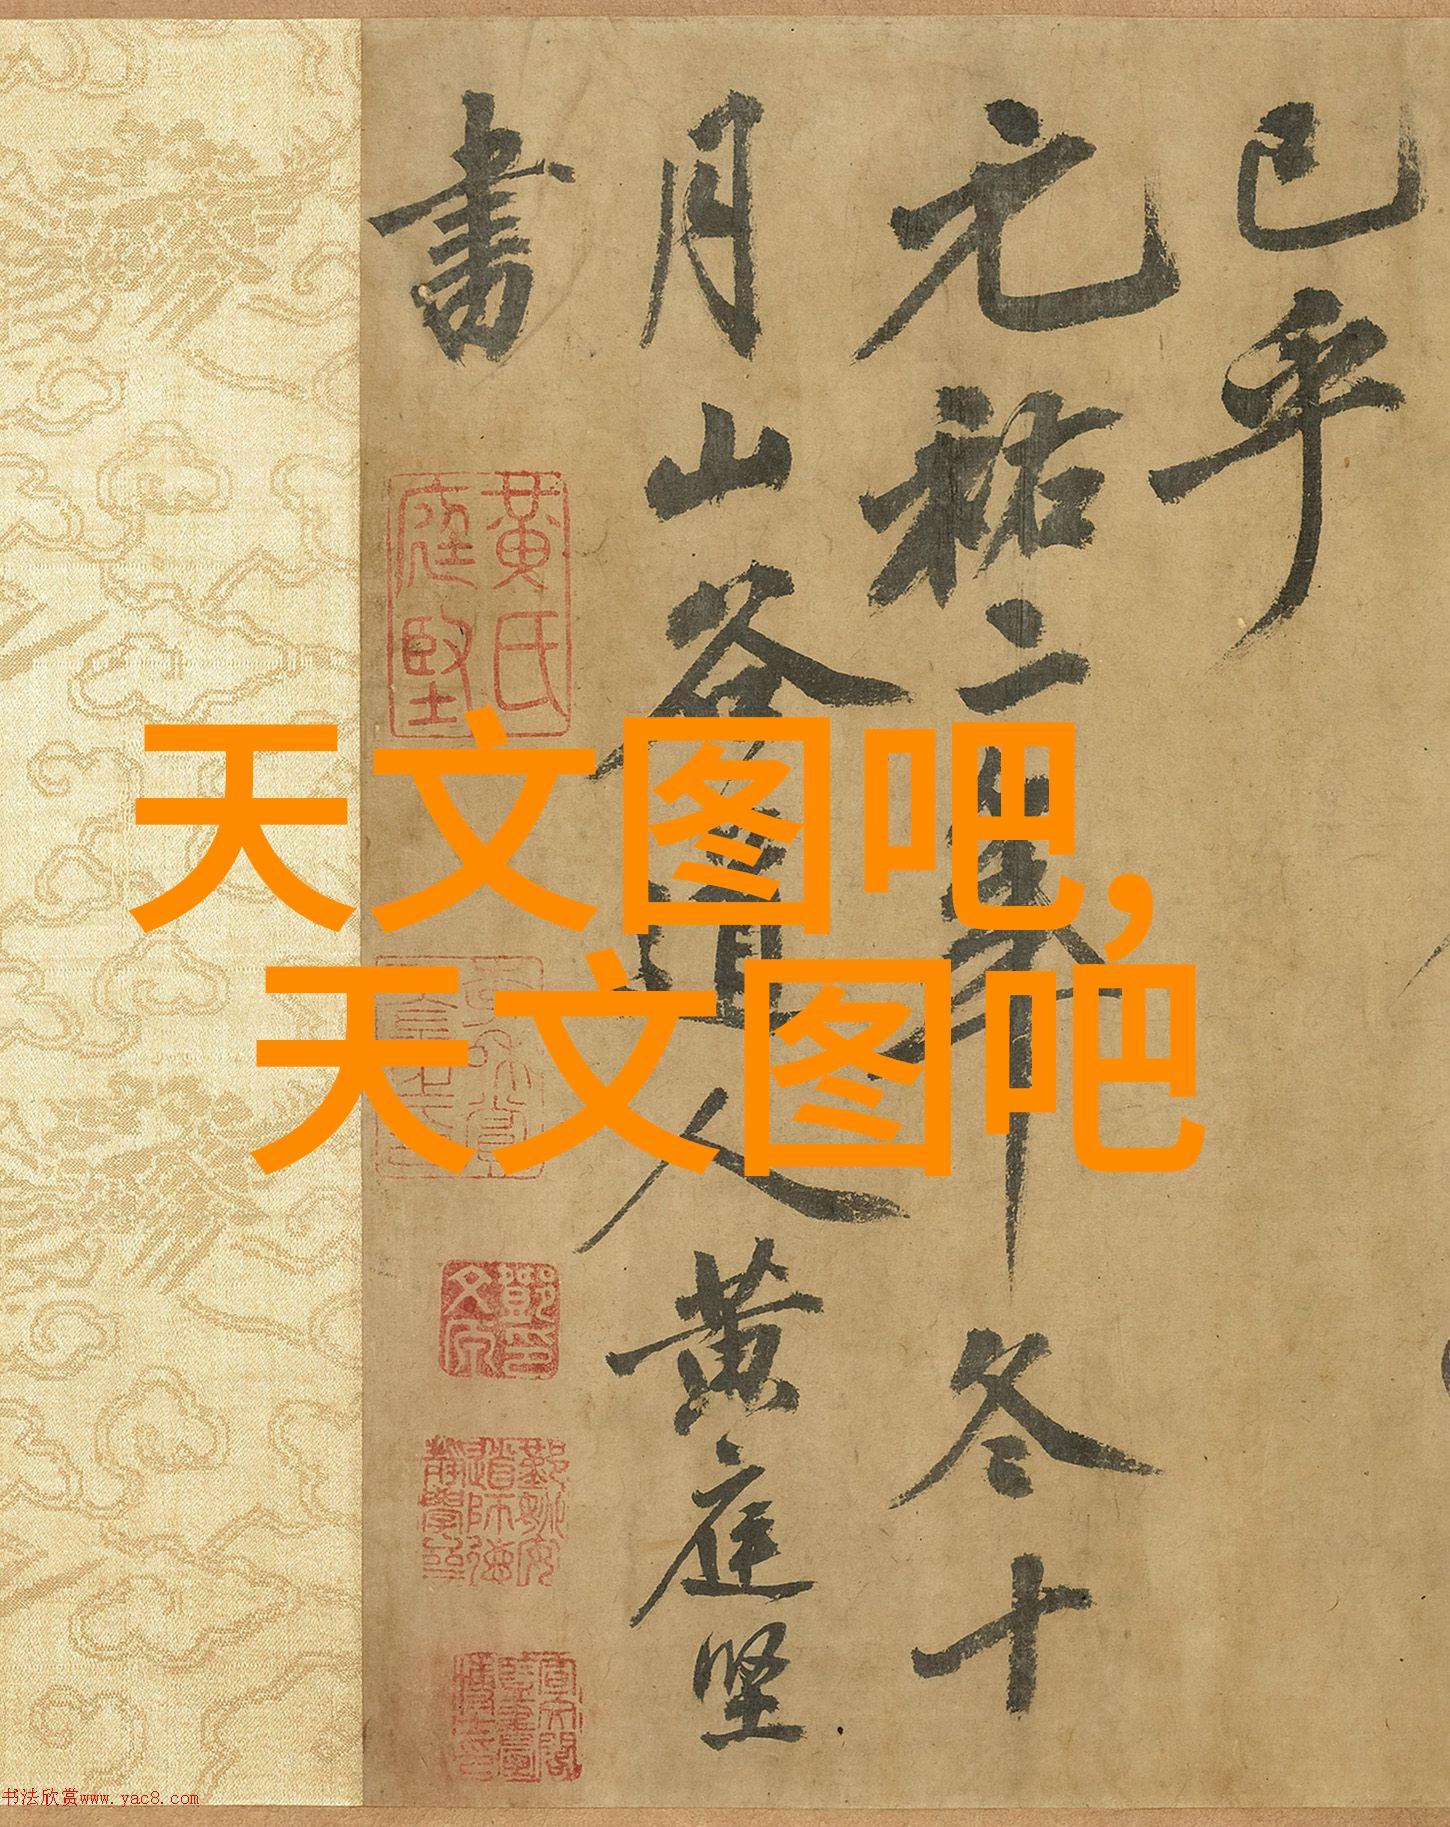 已乎
元祐二年冬十
月山谷道人黄庭堅
書
黄氏
庭堅
天文图吧,
天文图吧
书法欣赏www.yac8.com